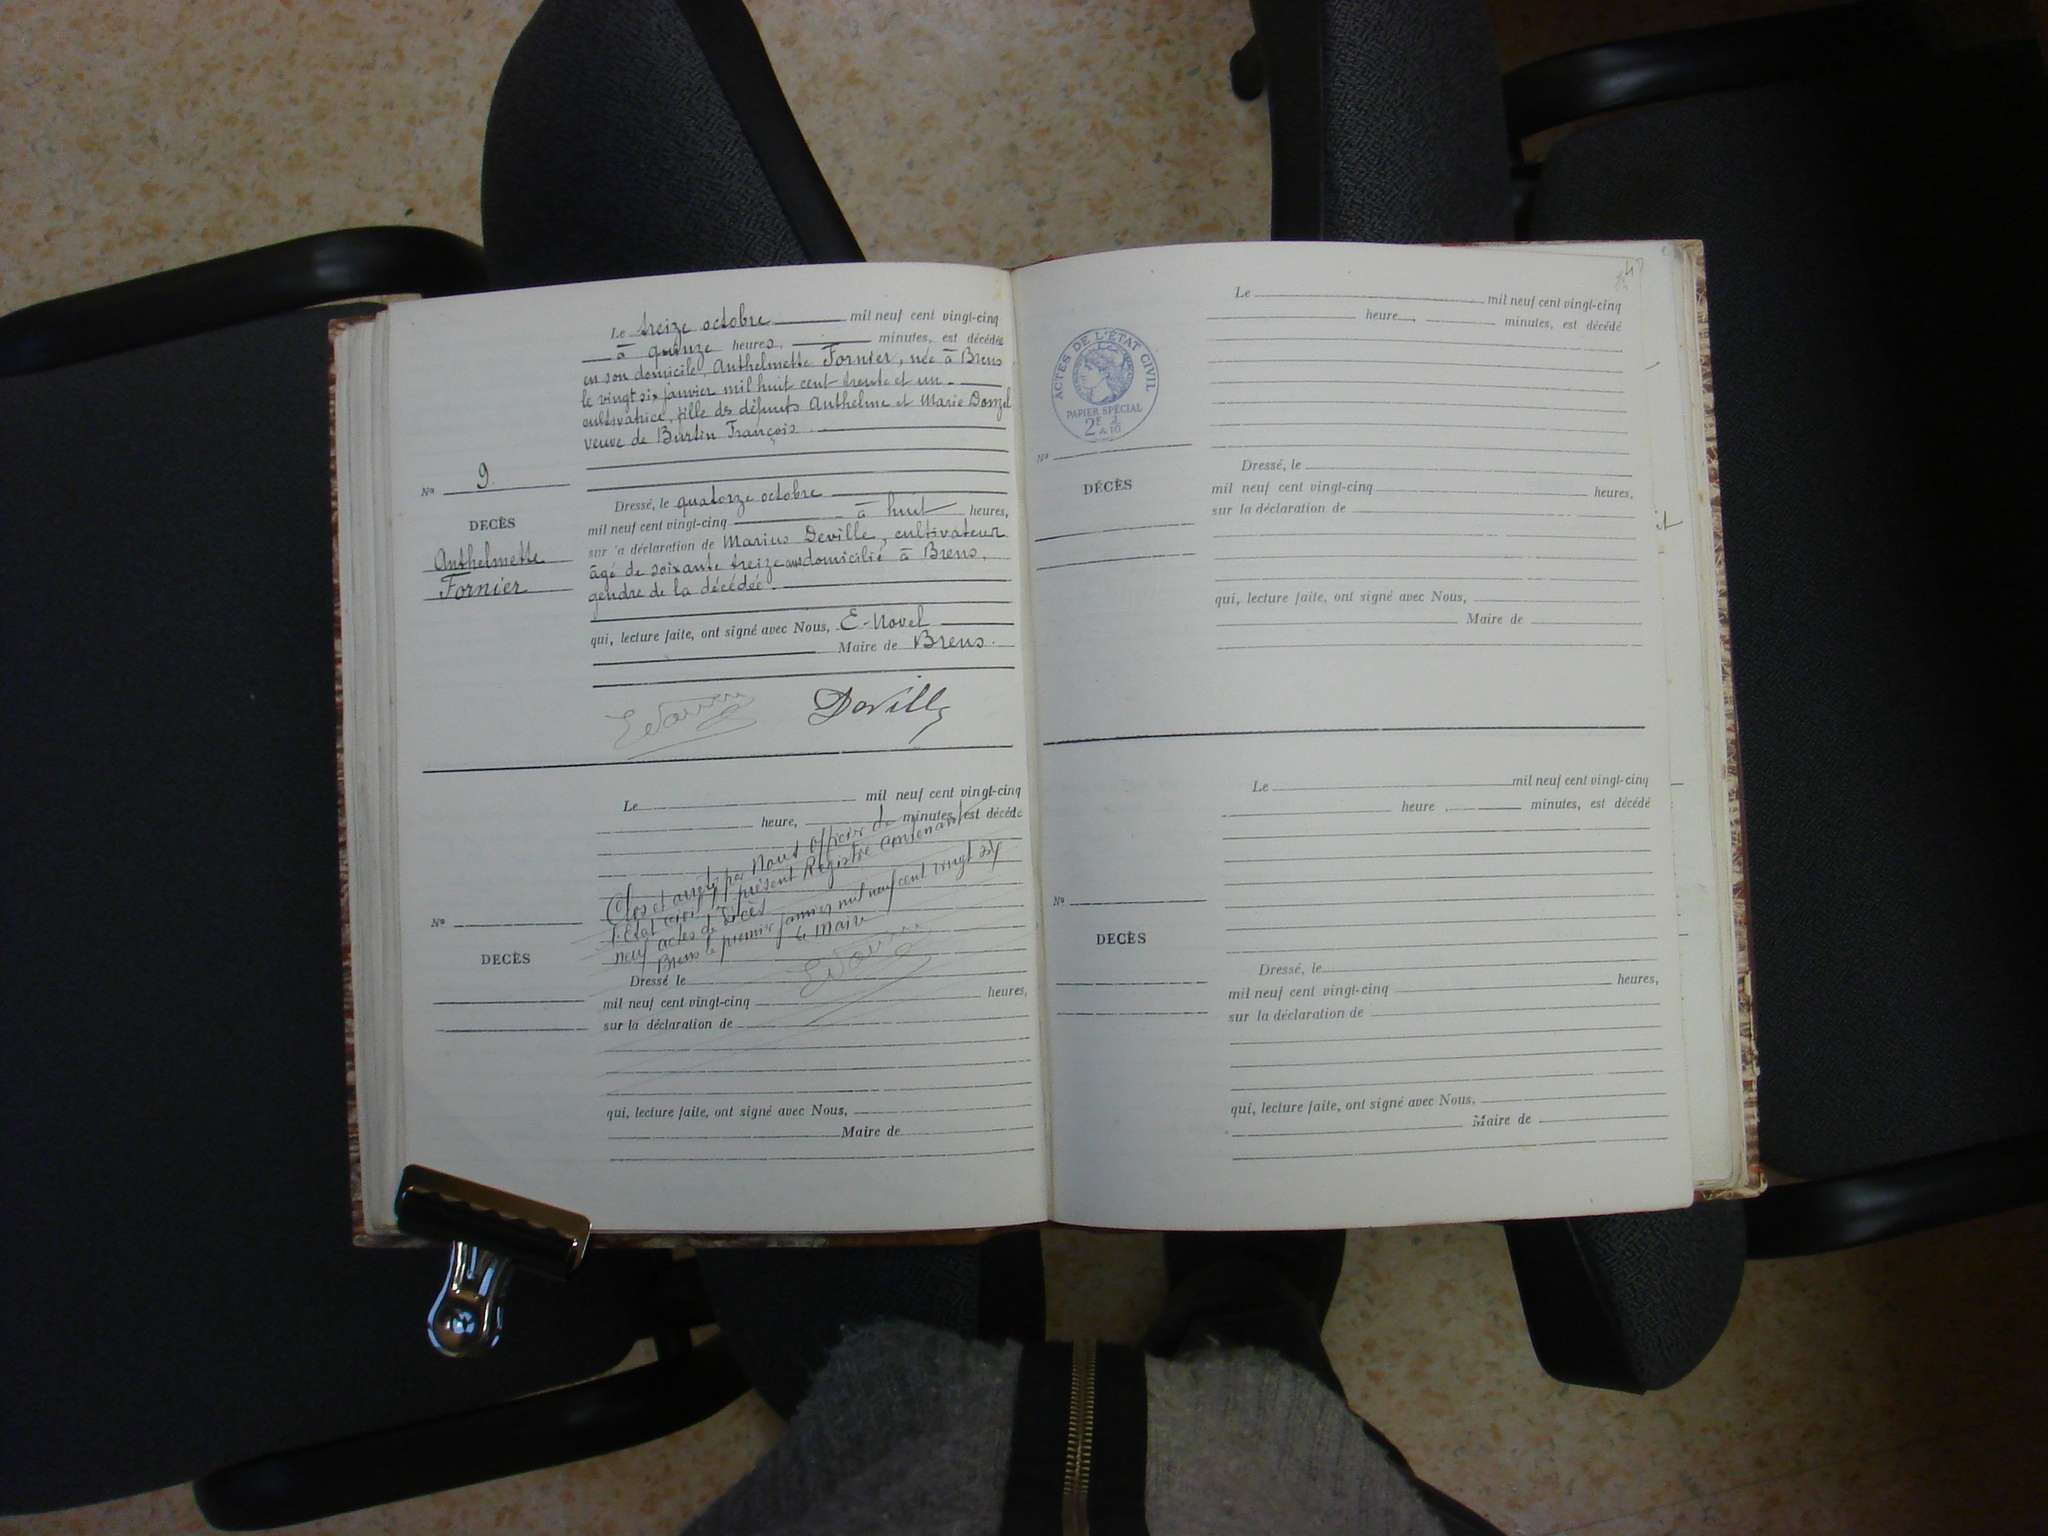 Le treize octobre mil neuf cent vingt-cinq
à quinze heures, minutes, est décédée
en son domicile, Anthelmette Fornier, née à Brens
le vingt six janvier mil huit cent trente et un
cultivatrice, fille des défunts Anthelme et Marie Donzel
veuve de Burtin François
No 9.
DECÈS
Anthelmette
Fornier
Dressé, le quatorze octobre
mil neuf cent vingt-cinq à huit heures,
sur la déclaration de Marius Deville, cultivateur
âgé de soixante treize ans domicilié à Brens,
gendre de la décédée.
qui, lecture faite, ont signé avec Nous, E. Novel
Maire de Brens.
Deville
Le mil neuf cent vingt-cinq
heure, minutes, est décédé
Clos et arrêté par Nous officier de
l'Etat civil le présent Registre contenant
neuf actes de Décès
Brens le premier janvier mil neuf cent vingt six
le Maire
No
DECÈS
Dressé le
mil neuf cent vingt-cinq heures,
sur la déclaration de
qui, lecture faite, ont signé avec Nous,
Maire de
Le mil neuf cent vingt-cinq
heure, minutes, est décédé
ACTES DE L'ÉTAT CIVIL
PAPIER SPÉCIAL
No
DÉCÈS
Dressé, le
mil neuf cent vingt-cinq heures,
sur la déclaration de
qui, lecture faite, ont signé avec Nous,
Maire de
Le mil neuf cent vingt-cinq
heure, minutes, est décédé
No
DECÈS
Dressé, le
mil neuf cent vingt-cinq heures,
sur la déclaration de
qui, lecture faite, ont signé avec Nous,
Maire de